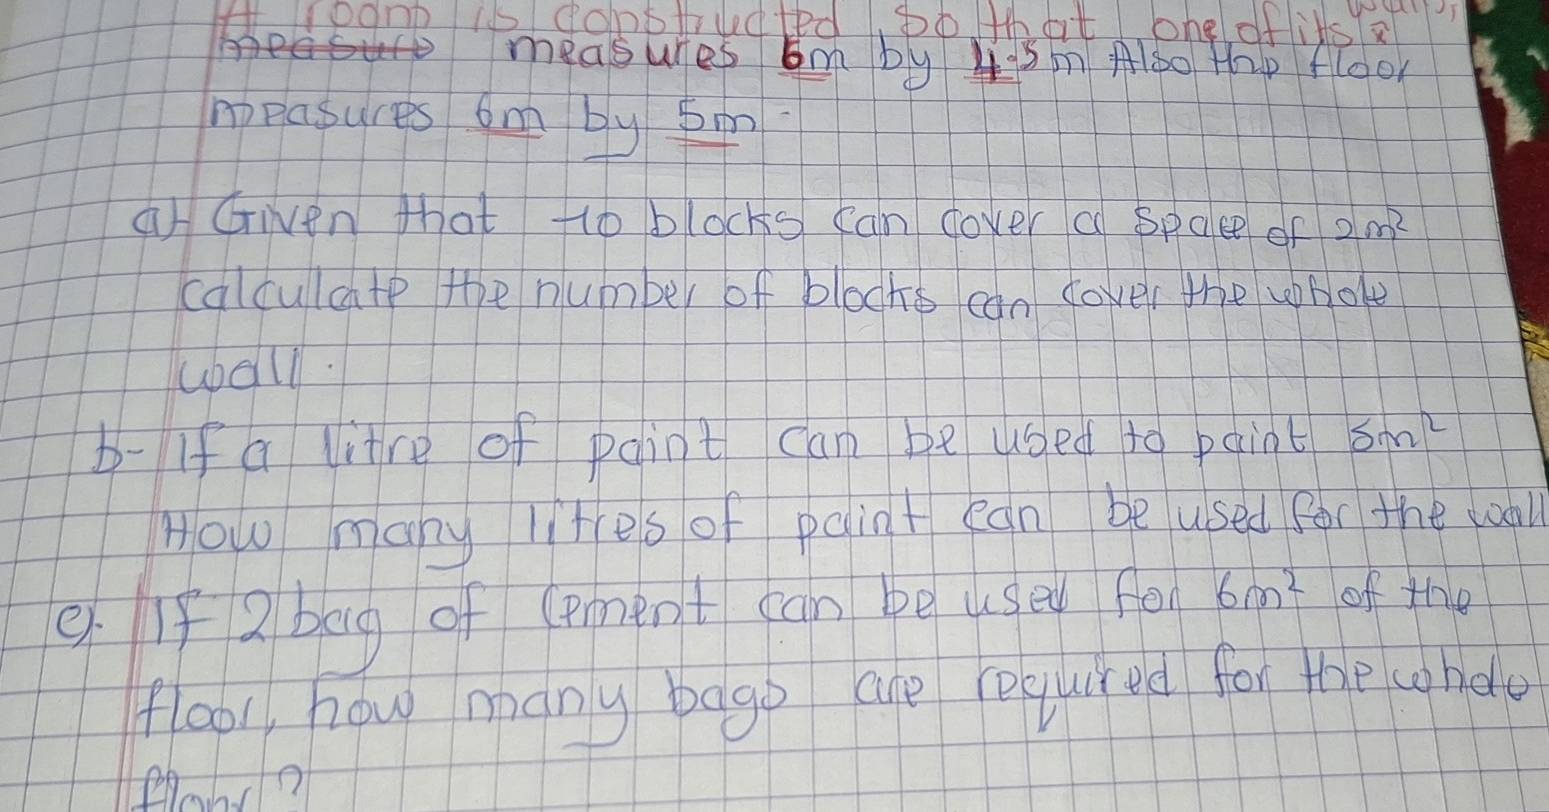 A room is constructed so that one of its walls,
measure measures 6m by 4.5m Also the floor
measures 6m by 5m.
a) Given that 10 blocks can cover a space of 2m²
calculate the number of blocks can cover the whole
wall.
b- If a litre of paint can be used to paint 5m²
How many litres of paint can be used for the wall
c. If 2 bag of cement can be used for 6m² of the
floor, how many bags are required for the whole
floor?